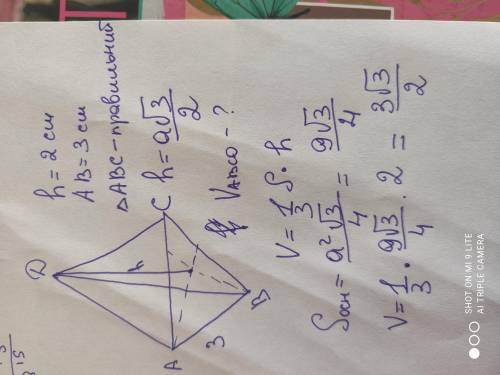 h = 2 см
AB = 3 см
△ABC - правильний
h = a√3/2
V_ABCD - ?
D
h
A
C
B
3
V = 1/3 S · h
S_осн = a²√3/4 = 9√3/4
V = 1/3 · 9√3/4 · 2 = 3√3/2
SHOT ON MI 9 LITE
AI TRIPLE CAMERA